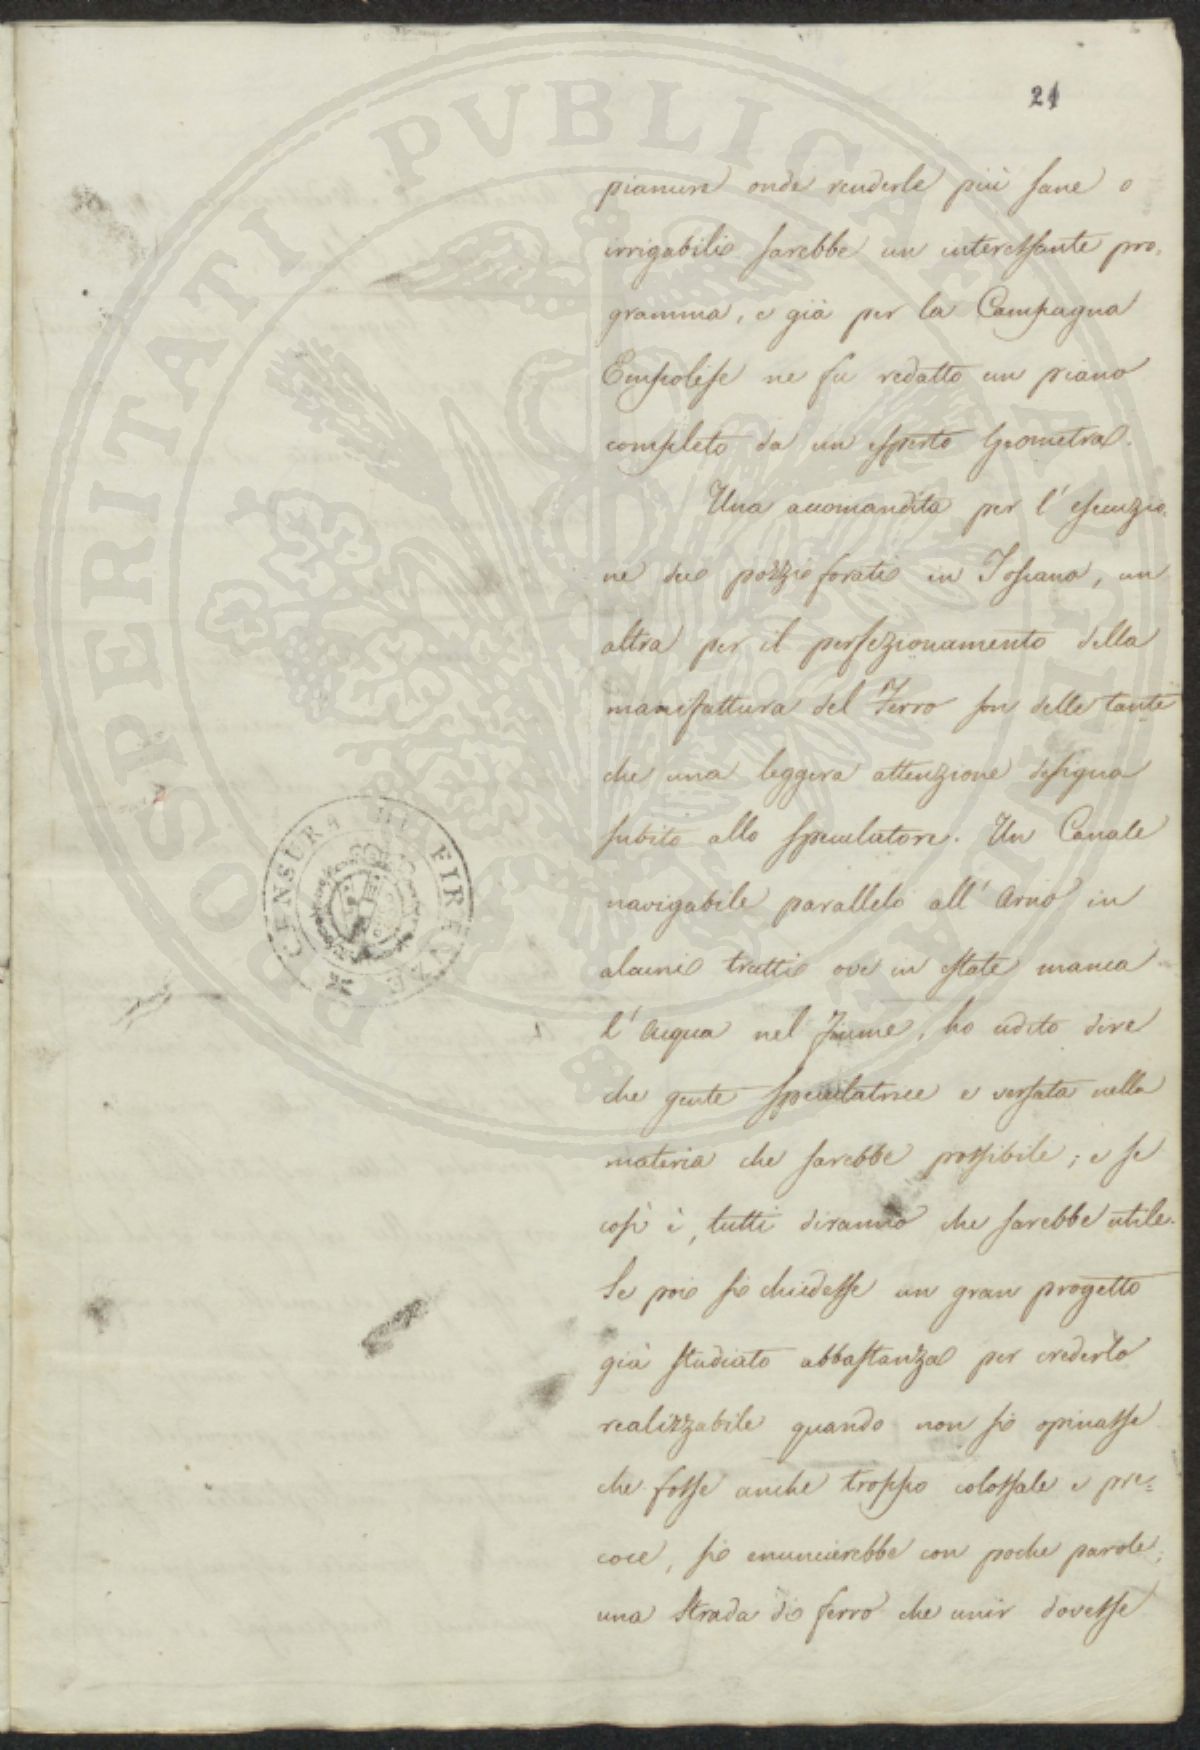 21
pianure onde renderle più sane o
irrigabili sarebbe un interessante pro-
gramma, e già per la Campagna
Empolese ne fu redatto un piano
completo da un esperto Geometra.
Una accomandita per l' esecuzio-
ne dei pozzi forati in Toscana, un
altra per il perfezionamento della
manifattura del Ferro son delle tante
che una leggera attenzione designa
subito allo speculatore. Un Canale
navigabile parallelo all' Arno in
alcuni tratti ove in estate manca
l' Acqua nel fiume, ho udito dire
che gente speculatrice e versata nella
materia che sarebbe possibile; e se
così è, tutti diranno che sarebbe utile.
Se poi si chiedesse un gran progetto
già studiato abbastanza per crederlo
realizzabile quando non si opinasse
che fosse anche troppo colossale e pre=
coce, si enuncierebbe con poche parole;
una Strada di ferro che unir dovesse
CENSURA DI FIRENZE
PROSPERITATI PVBLICAE AVGENDAE